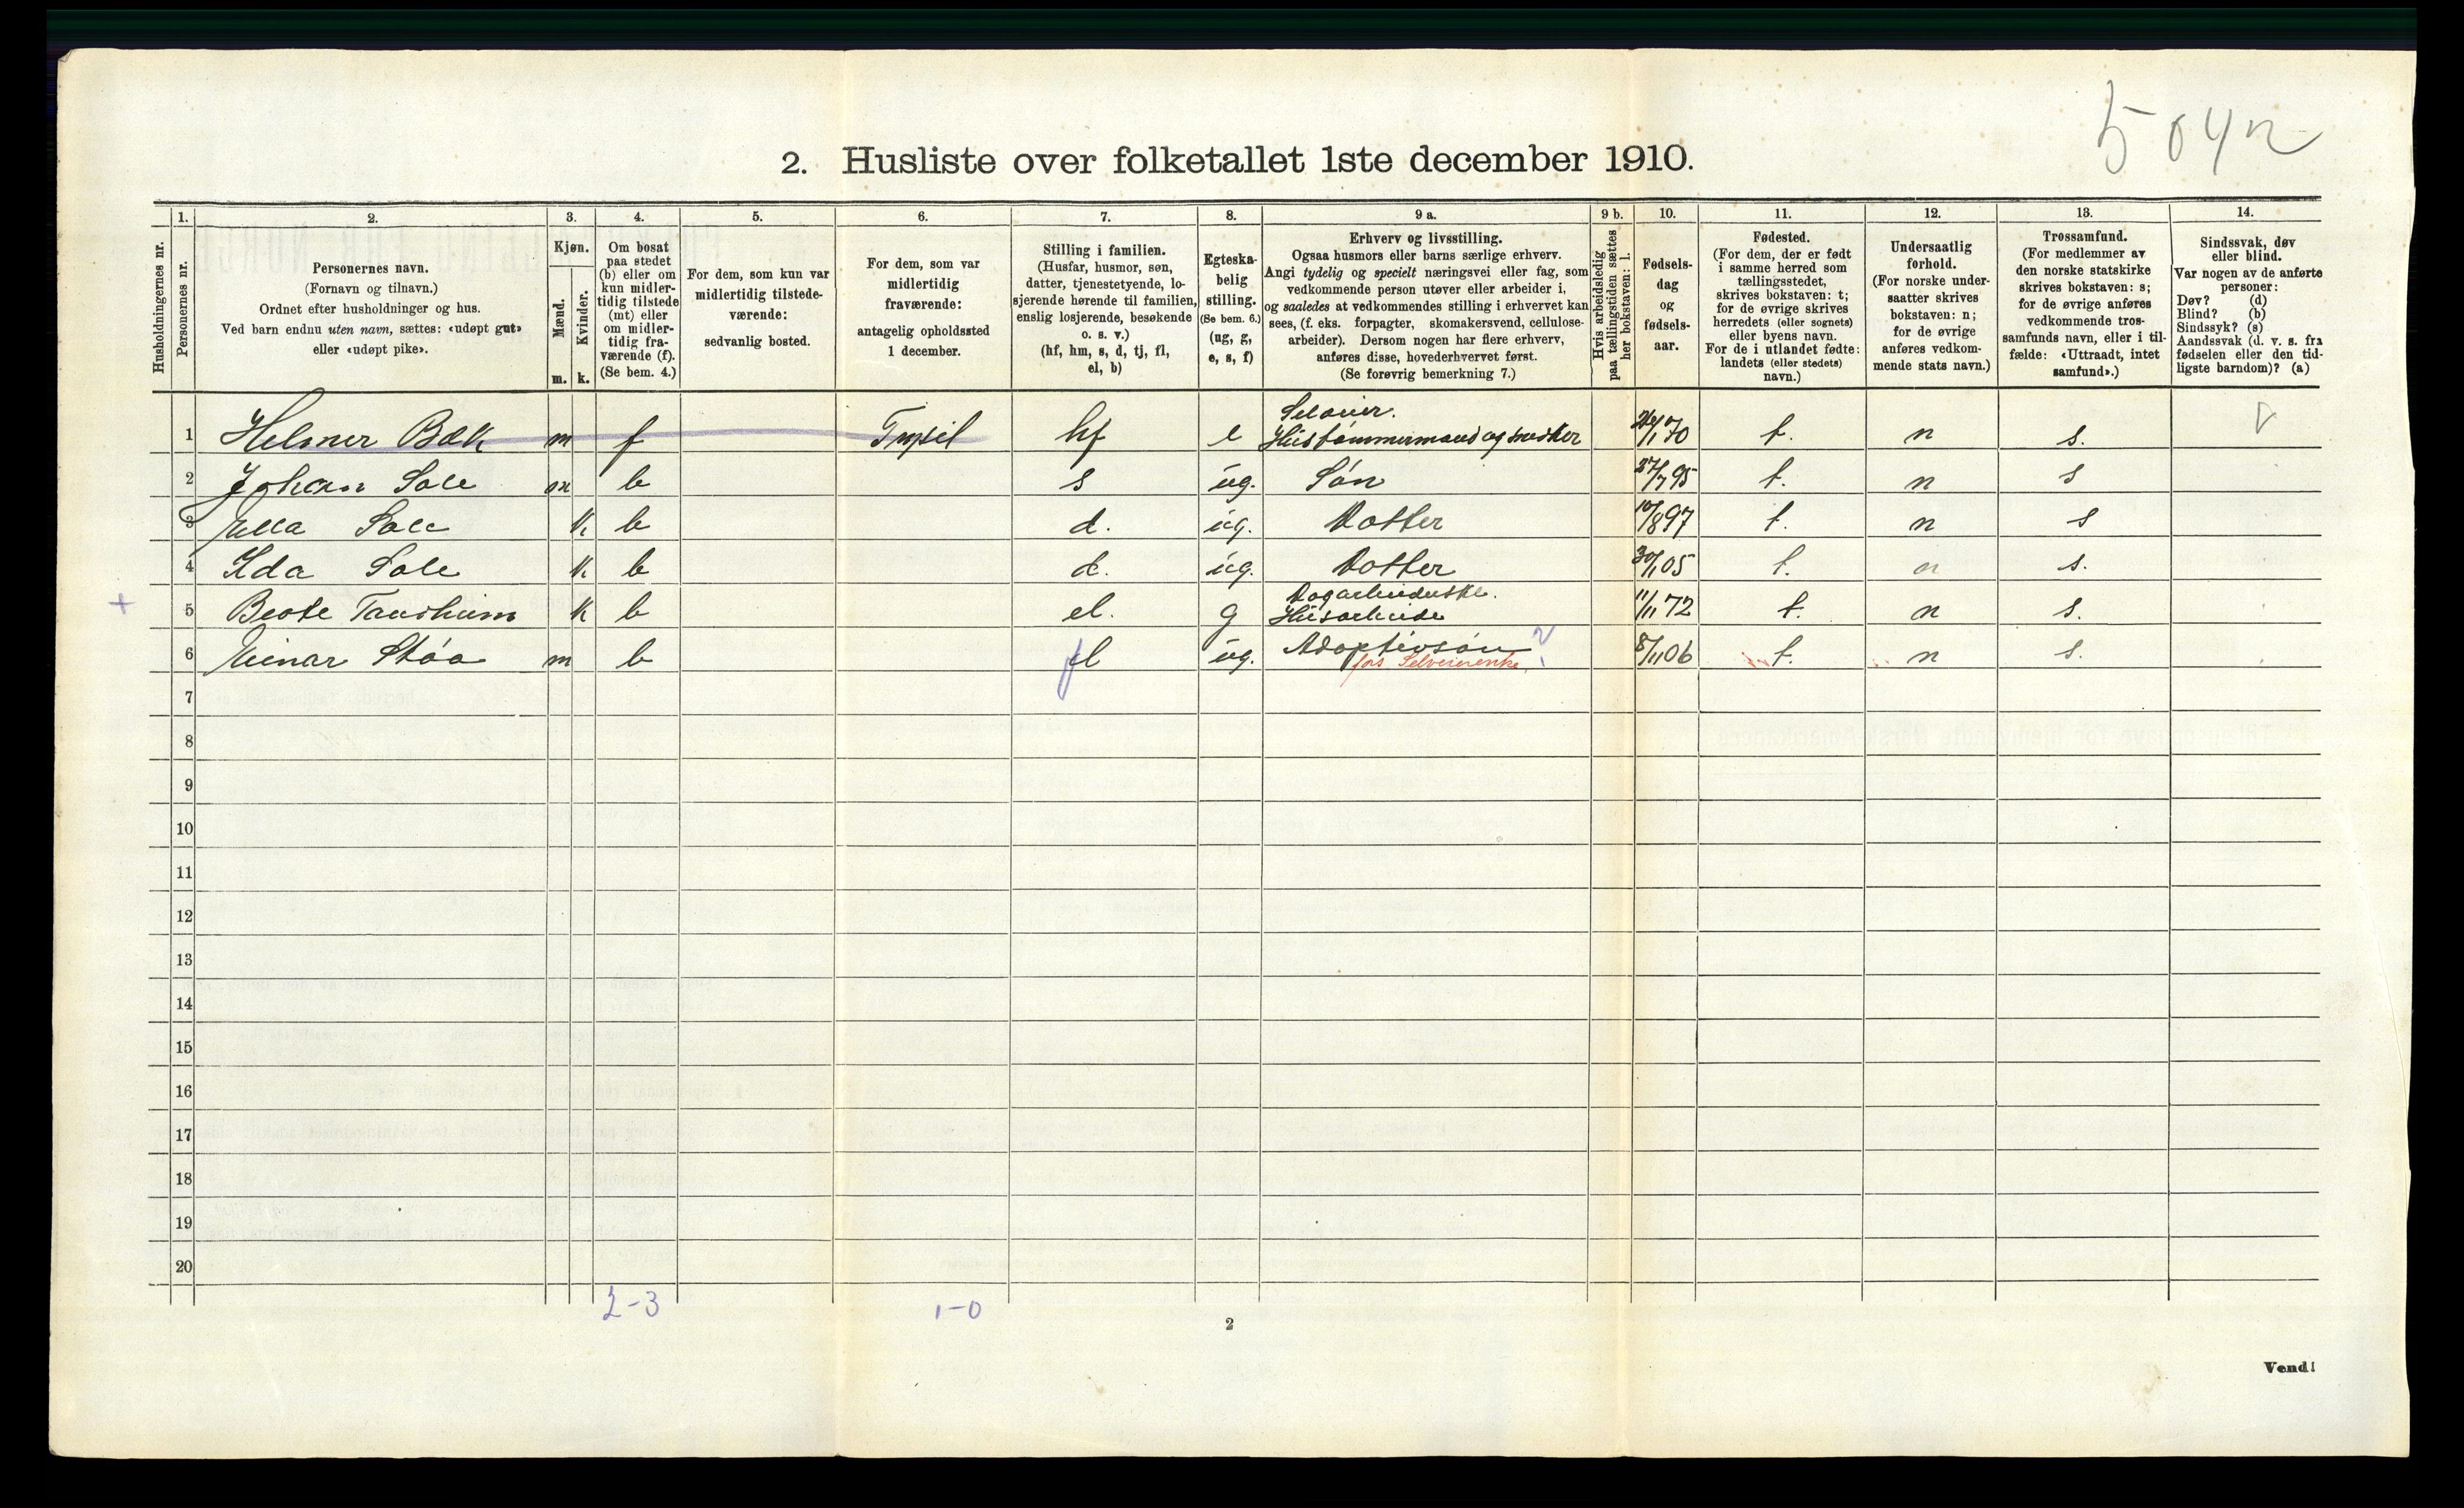 504n
2. Husliste over folketallet 1ste december 1910.
Husholdningernes nr.
1.
Personernes nr.
2.
Personernes navn.
(Fornavn og tilnavn.)
Ordnet efter husholdninger og hus.
Ved barn endnu uten navn, sættes: «udøpt gut»
eller «udøpt pike».
3.
Kjøn.
Mænd.
Kvinder.
m. k.
4.
Om bosat
paa stedet
(b) eller om
kun midler-
tidig tilstede
(mt) eller
om midler-
tidig fra-
værende (f).
(Se bem. 4.)
5.
For dem, som kun var
midlertidig tilstede-
værende:
sedvanlig bosted.
6.
For dem, som var
midlertidig
fraværende:
antagelig opholdssted
1 december.
7.
Stilling i familien.
(Husfar, husmor, søn,
datter, tjenestetyende, lo-
sjerende hørende til familien,
enslig losjerende, besøkende
o. s. v.)
(hf, hm, s, d, tj, fl,
el, b)
8.
Egteska-
belig
stilling.
(Se bem. 6.)
(ug, g,
e, s, f)
9 a.
Erhverv og livsstilling.
Ogsaa husmors eller barns særlige erhverv.
Angi tydelig og specielt næringsvei eller fag, som
vedkommende person utøver eller arbeider i,
og saaledes at vedkommendes stilling i erhvervet kan
sees, (f. eks. forpagter, skomakersvend, cellulose-
arbeider). Dersom nogen har flere erhverv,
anføres disse, hovederhvervet først.
(Se forøvrig bemerkning 7.)
9 b.
Hvis arbeidsledig
paa tællingstiden sættes
her bokstaven: l.
10.
Fødsels-
dag
og
fødsels-
aar.
11.
Fødested.
(For dem, der er født
i samme herred som
tællingsstedet,
skrives bokstaven: t;
for de øvrige skrives
herredets (eller sognets)
eller byens navn.
For de i utlandet fødte:
landets (eller stedets)
navn.)
12.
Undersaatlig
forhold.
(For norske under-
saatter skrives
bokstaven: n;
for de øvrige
anføres vedkom-
mende stats navn.)
13.
Trossamfund.
(For medlemmer av
den norske statskirke
skrives bokstaven: s;
for de øvrige anføres
vedkommende tros-
samfunds navn, eller i til-
fælde: «Uttraadt, intet
samfund».)
14.
Sindssvak, døv
eller blind.
Var nogen av de anførte
personer:
Døv? (d)
Blind? (b)
Sindssyk? (s)
Aandssvak (d. v. s. fra
fødselen eller den tid-
ligste barndom)? (a)
Seleier.
1 Helmer Bæk m f Trysil hf e Hustømmermand og snedker 26/1 70 t. n s.
2 Johan Sole m b s ug. Søn 27/7 95 t. n s
3 Ella Sole k b d. ug. Dotter 10/8 97 t. n s
4 Ida Sole k b d. ug. Dotter 30/1 05 t. n s.
Dagarbeiderske.
5 Beate k b el. g Husarbeide 11/11 72 t. n s.
6 Einar Støa m b fl ug. Adoptivsøn ? 8/11 06 t. n s.
fors Selveierenke
7
8
9
10
11
12
13
14
15
16
17
18
19
20
2-3
1-0
2
Vend!